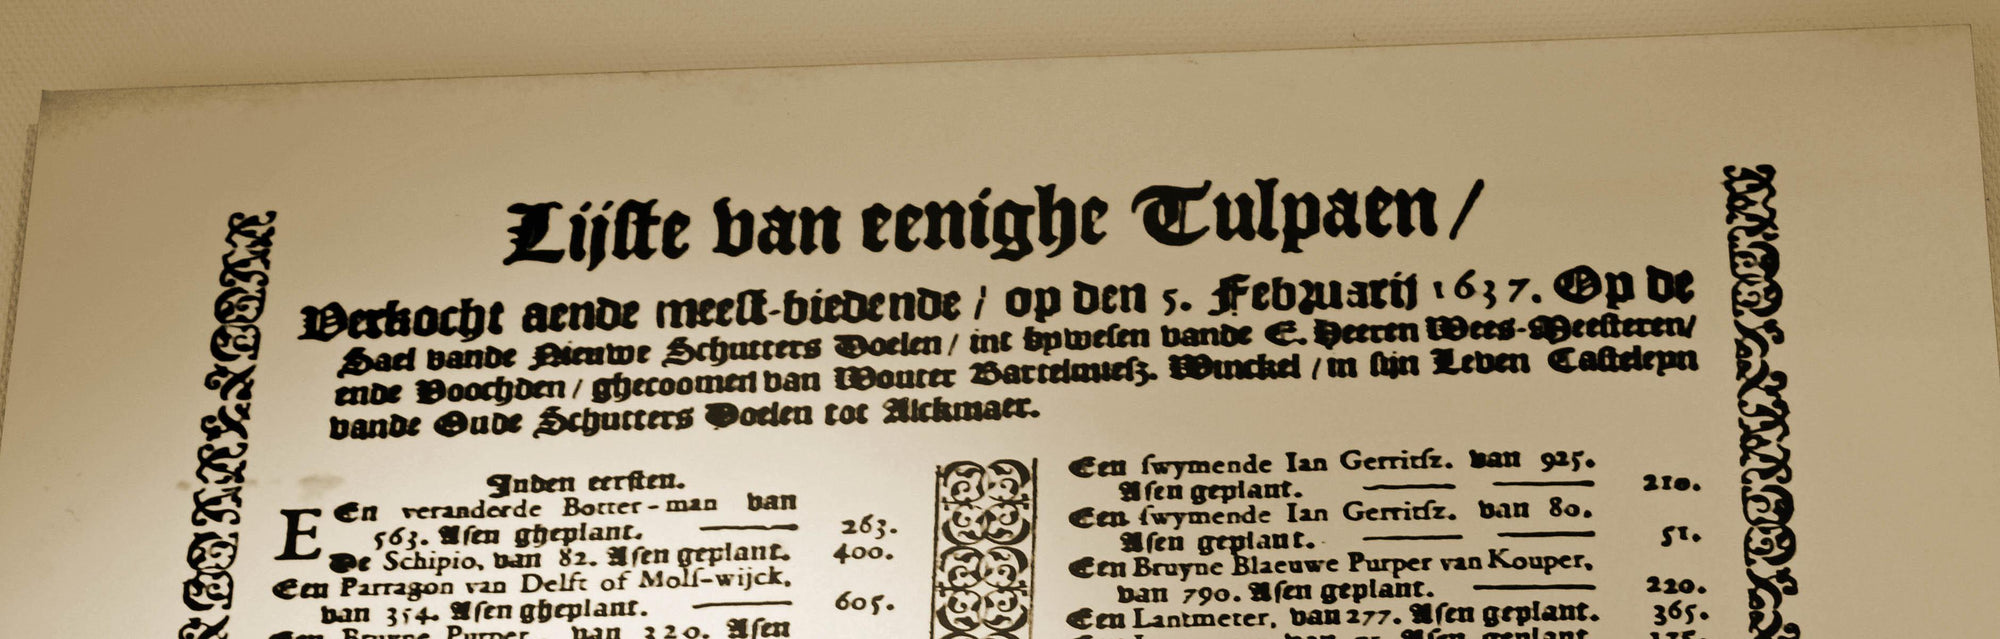 Lijste van eenighe Tulpaen/
Verkocht aende meest-biedende / op den 5. Februarij 1637. Op de
Sael vande Nieuwe Schutters Doelen / int bywesen vande E. Heeren Wees-Meesteren/
ende Voochden / ghecoomen van Wouter Bartelmiesz. Winckel / in sijn Leven Casteleyn
vande Oude Schutters Doelen tot Alckmaer.
Inden eersten.
EEn veranderde Botter-man van
563. Asen gheplant. 263.
De Schipio, van 82. Asen geplant. 400.
Een Parragon van Delft of Mols-wijck,
van 354. Asen gheplant. 605.
Een Bruyne Purper van 320. Asen
Een swymende Ian Gerritsz. van 925.
Asen geplant. 210.
Een swymende Ian Gerritsz. van 80.
Asen geplant. 51.
Een Bruyne Blaeuwe Purper van Kouper,
van 790. Asen geplant. 220.
Een Lantmeter, van 277. Asen geplant. 365.
Asen geplant